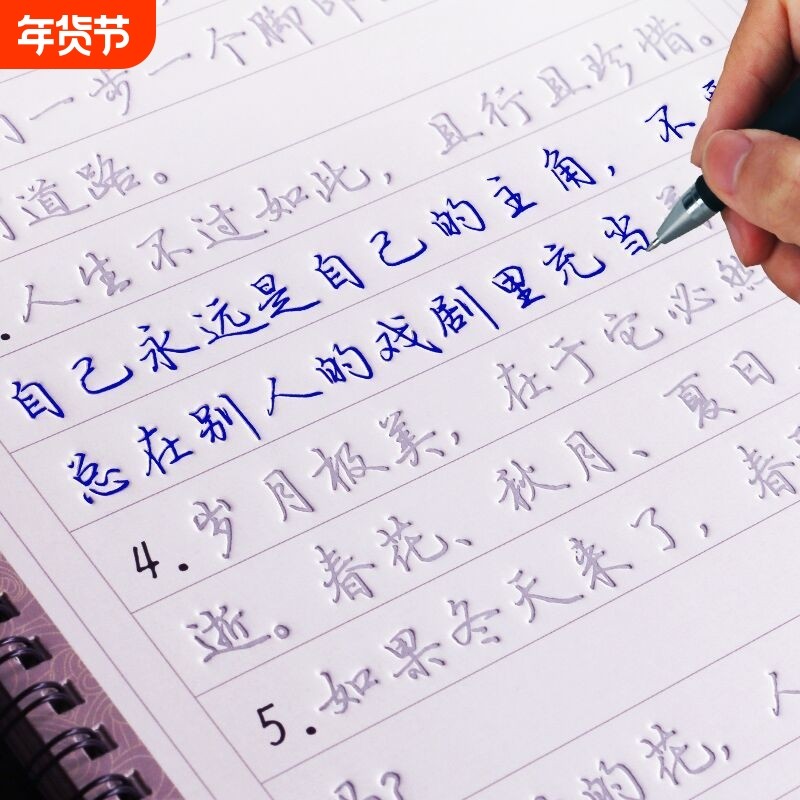 年货节
一步一个脚印
道路。
人生不过如此，且行且珍惜。
自己永远是自己的主角，不
总在别人的戏剧里充当
4.岁月极美，在于它必然
逝。春花、秋月、夏日、
5.如果冬天来了，春
的花，人